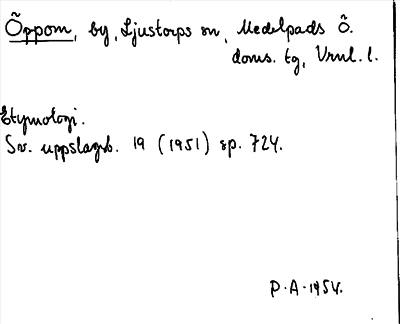 Öppom, by, Ljustorps sn, Medelpads ö.
doms. tg, Vrnl. l.
Etymologi.
Sv. uppslagsb. 19 (1951) sp. 724.
P.A. 1954.